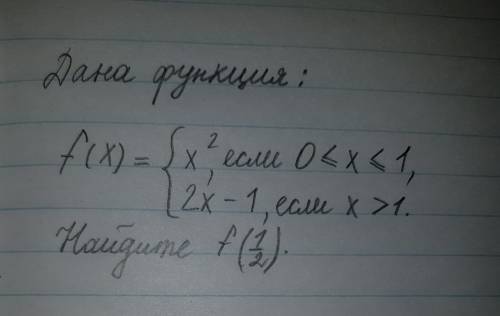 Дана функция:
f(x) = { x², если 0 ⩽ x ⩽ 1,
2x - 1, если x > 1.
Найдите f(1/2).